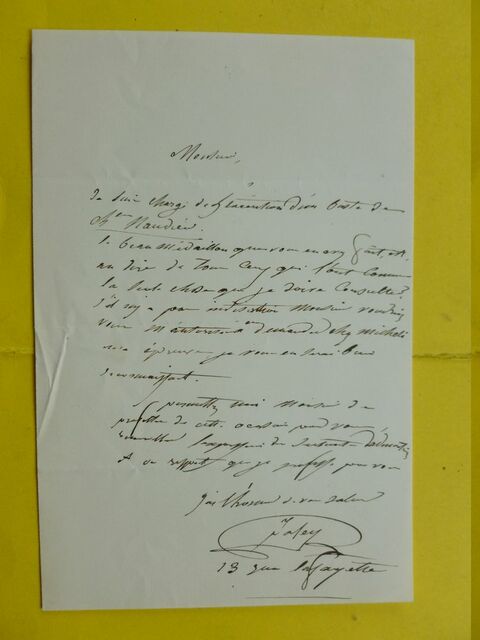 Monsieur,
Je suis chargé de l'exécution d'un buste de
Mr Naudien.
Le beau médaillon que vous en avez fait, est
au dire de tous ceux qui l'ont connu
la seule chose que je doive consulter
s'il n'y a pas indiscrétion Monsieur voudriez
vous m'autoriser a en demander chez
une épreuve je vous en serai bien
reconnaissant.
permettez moi Monsieur de
profiter de cette occasion pour vous
l'expression des sentiments d'admiration
& de respect que je professe pour vous
J'ai l'honneur de vous saluer
13 rue Lafayette